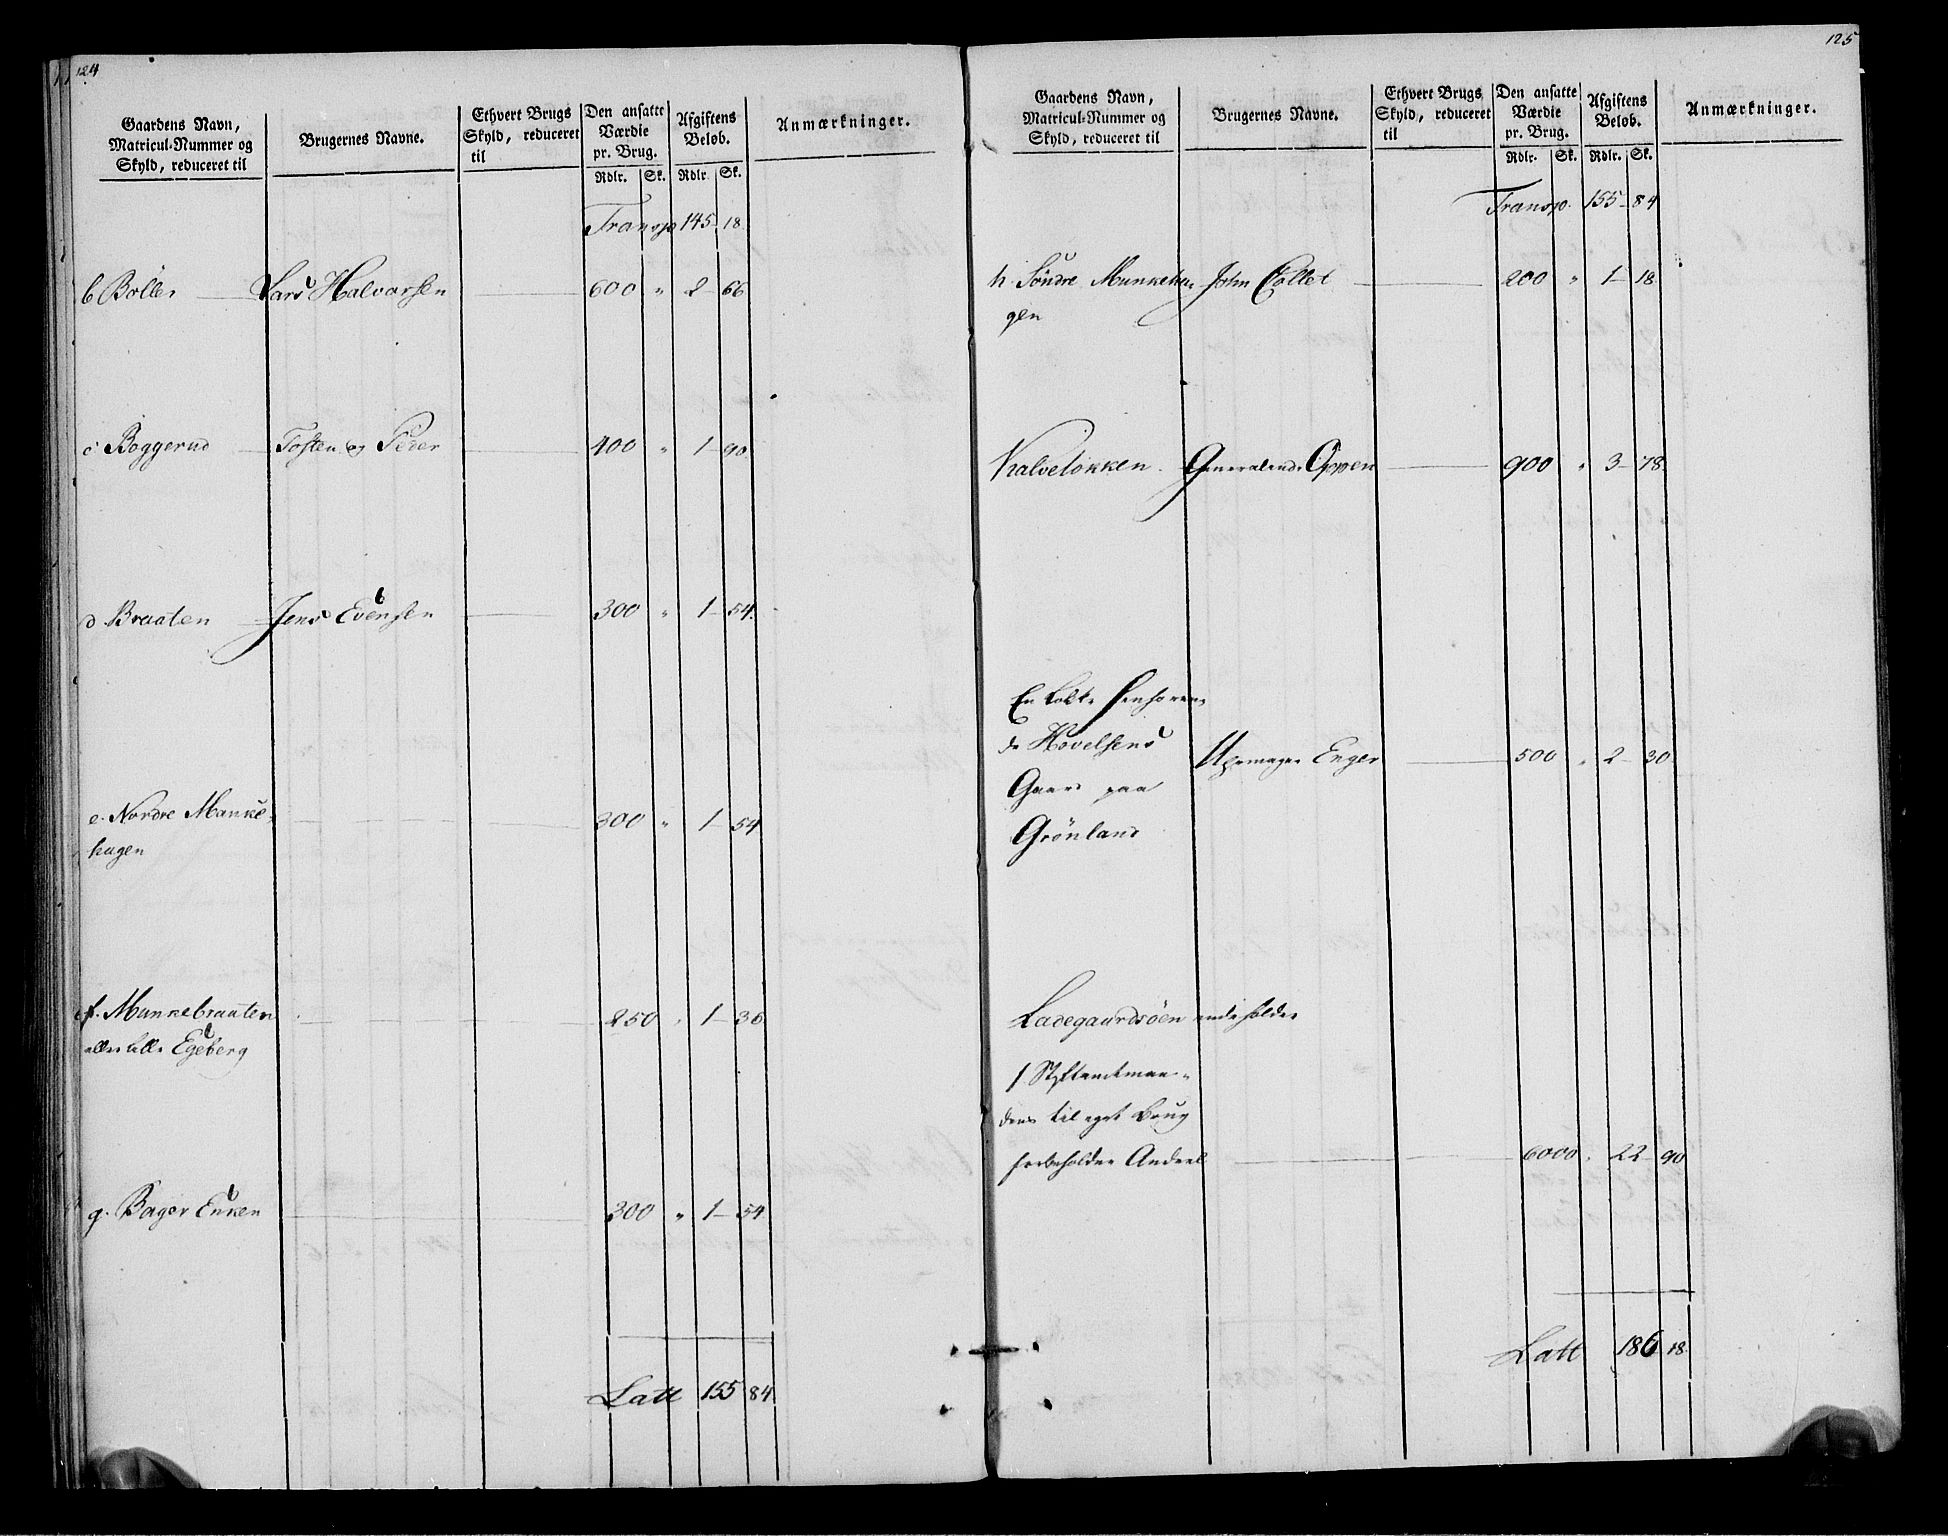 124
Gaardens Navn, Matricul-Nummer og Skyld, reduceret til
Brugernes Navne.
Ethvert Brugs Skyld, reduceret til
Den ansatte Værdie pr. Brug.
Afgiftens Beløb.
Anmærkninger.
Rdlr. Sk. Rdlr. Sk.
Transp 145 18
b Böller Lars Halvorsen 600 " 2 - 66
c Boggerud Tosten og Peder 400 " 1 - 90
d Braaten Jens Evensen 300 " 1 - 54.
e. Nordre Munke-
hagen 300 " 1 - 54
f. Munkebraaten
eller lille Egeberg 250 " 1 - 36
g. Bager Enken 300 " 1 - 54
Latt 155 84
125
Gaardens Navn, Matricul-Nummer og Skyld, reduceret til
Brugernes Navne.
Ethvert Brugs Skyld, reduceret til
Den ansatte Værdie pr. Brug.
Afgiftens Beløb.
Anmærkninger.
Rdlr. Sk. Rdlr. Sk.
Transp. 155 - 84
h. Söndre Munkeha-
gen John Collet 200 " 1 - 18
Kalvelökken Oppen 900 " 3 - 78
En Løkke
Hovelsens
Gaard paa
Grönland Uhrmager Enger 500 " 2 - 30
Ladegaardsöen indeholder
1 Stiftamtman-
dens til eget Brug
forbeholdne Andeel 6000 " 22 - 90
Latt 186 18